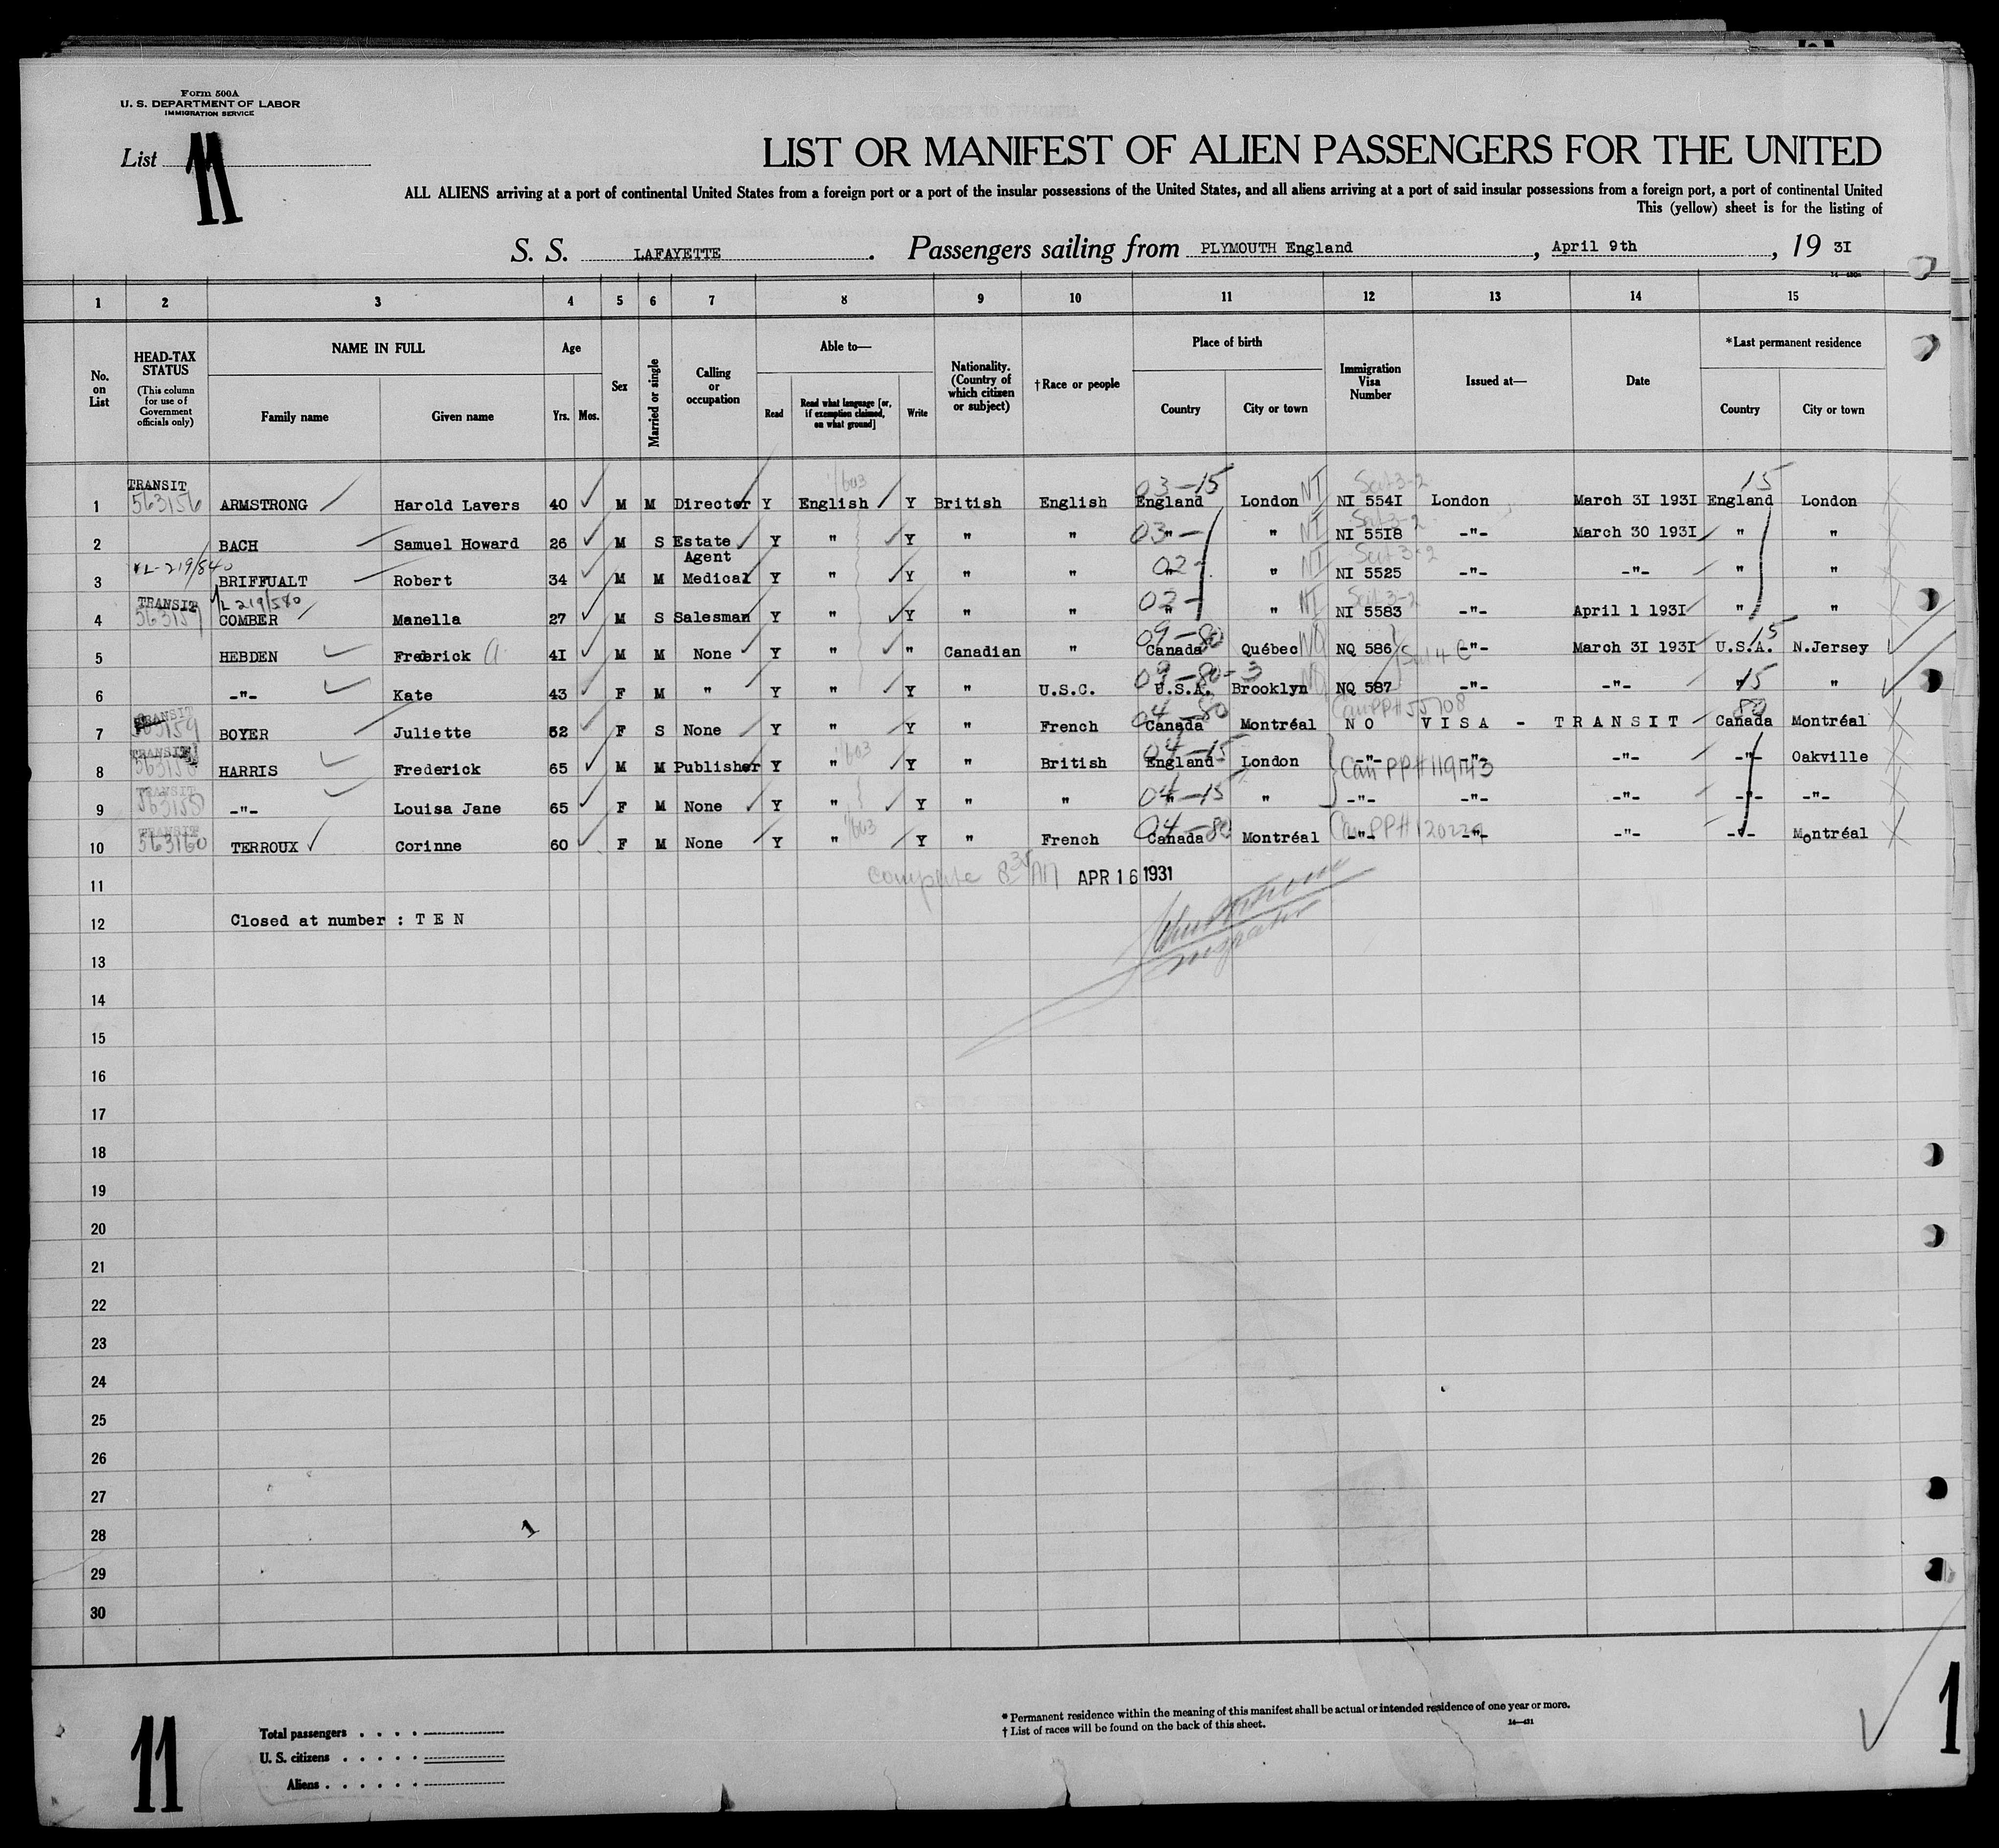 Form 500A
U. S. DEPARTMENT OF LABOR
IMMIGRATION SERVICE
List 11
LIST OR MANIFEST OF ALIEN PASSENGERS FOR THE UNITED
ALL ALIENS arriving at a port of continental United States from a foreign port or a port of the insular possessions of the United States, and all aliens arriving at a port of said insular possessions from a foreign port, a port of continental United
This (yellow) sheet is for the listing of
S. S. LAFAYETTE. Passengers sailing from PLYMOUTH England, April 9th, 19 3I
1 2 3 4 5 6 7 8 9 10 11 12 13 14 15
No. on List
HEAD-TAX STATUS
(This column for use of Government officials only)
NAME IN FULL
Family name
Given name
Age
Yrs. Mos.
Sex
Married or single
Calling or occupation
Able to—
Read
Read what language [or, if exemption claimed, on what ground]
Write
Nationality. (Country of which citizen or subject)
†Race or people
Place of birth
Country
City or town
Immigration Visa Number
Issued at—
Date
*Last permanent residence
Country
City or town
1 TRANSIT 563156 ARMSTRONG Harold Lavers 40 M M Director Y English Y British English 03-15 England London NI NI 554I London March 3I 193I 15 England London
2 BACH Samuel Howard 26 M S Estate Agent Y " Y " " 03- " " NI NI 55I8 -"- March 30 193I " "
3 L-219/840 BRIFFUALT Robert 34 M M Medical Y " Y " " 02- " NI NI 5525 -"- -"- " "
4 TRANSIT L 219/580 COMBER Manella 27 M S Salesman Y " Y " " 02- " NI NI 5583 -"- April 1 193I " "
5 HEBDEN Frederick 4I M M None Y " " Canadian " 09-80 Canada Québec NQ NQ 586 -"- March 3I 193I 15 U.S.A. N.Jersey
6 -"- Kate 43 F M " Y " Y " U.S.C. 09-80-3 U.S.A. Brooklyn NQ 587 -"- -"- 15 " "
7 TRANSIT 563159 BOYER Juliette 52 F S None Y " Y " French 04-80 Canada Montréal Can PP# 55708 NO VISA - TRANSIT 80 Canada Montréal
8 TRANSIT HARRIS Frederick 65 M M Publisher Y " Y " British 04-15 England London -"- -"- -"- -"- Oakville
9 TRANSIT -"- Louisa Jane 65 F M None Y " Y " " 04-15 " " -"- -"- -"- -"- -"-
10 TRANSIT 563160 TERROUX Corinne 60 F M None Y " Y " French 04-80 Canada Montréal -"- -"- -"- -"- Montréal
11 complete 8 30 AM APR 16 1931
12 Closed at number : T E N
13
14
15
16
17
18
19
20
21
22
23
24
25
26
27
28 1
29
30
11
Total passengers
U. S. citizens
Aliens
* Permanent residence within the meaning of this manifest shall be actual or intended residence of one year or more.
† List of races will be found on the back of this sheet.
1